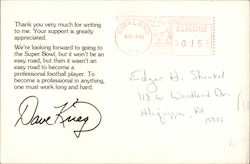 Thank you very much for writing
to me. Your support is greatly
appreciated.
We're looking forward to going to
the Super Bowl, but it won't be an
easy road, but then it wasn't an
easy road to become a
professional football player. To
become a professional in anything,
one must work long and hard.
Dave Krieg
U.S. POSTAGE
015
Edgar H.
Woodland Dr.
Aliquippa, PA
15001